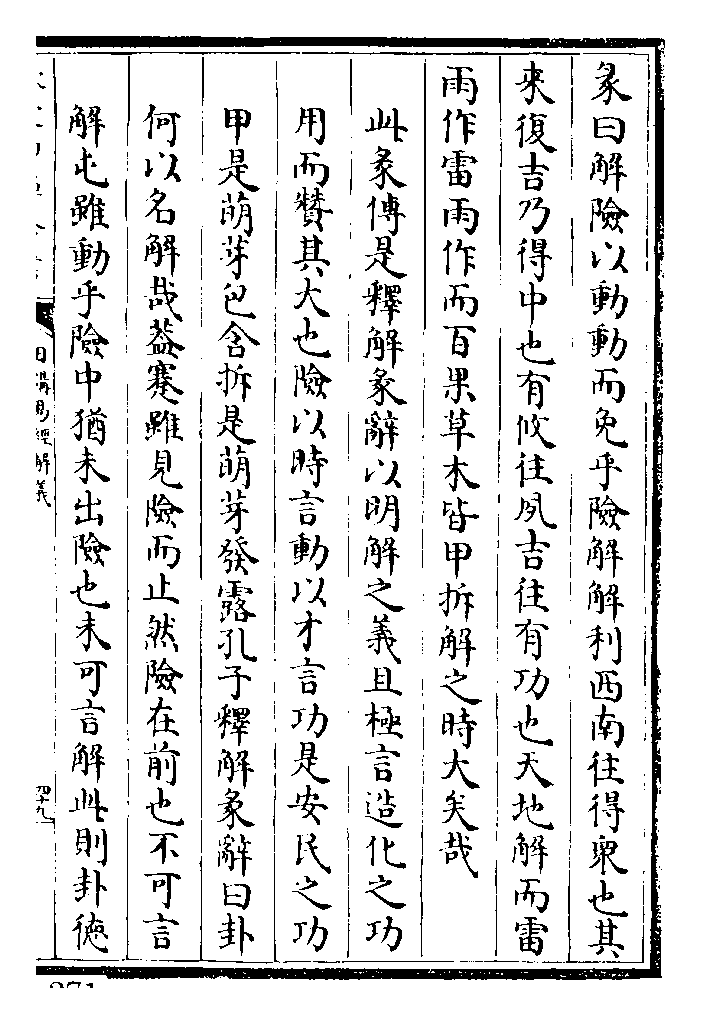 彖曰解險以動動而免乎險解解利西南往得衆也其
来復吉乃得中也有攸往夙吉往有功也天地解而雷
雨作雷雨作而百果草木皆甲拆解之時大矣哉
此彖傳是釋解彖辭以明解之義且極言造化之功
用而贊其大也險以時言動以才言功是安民之功
甲是萌芽包含拆是萌芽發露孔子釋解彖辭曰卦
何以名解哉蓋蹇雖見險而止然險在前也不可言
解屯雖動乎險中猶未出險也未可言解此則卦德
日講易經解義
四十九